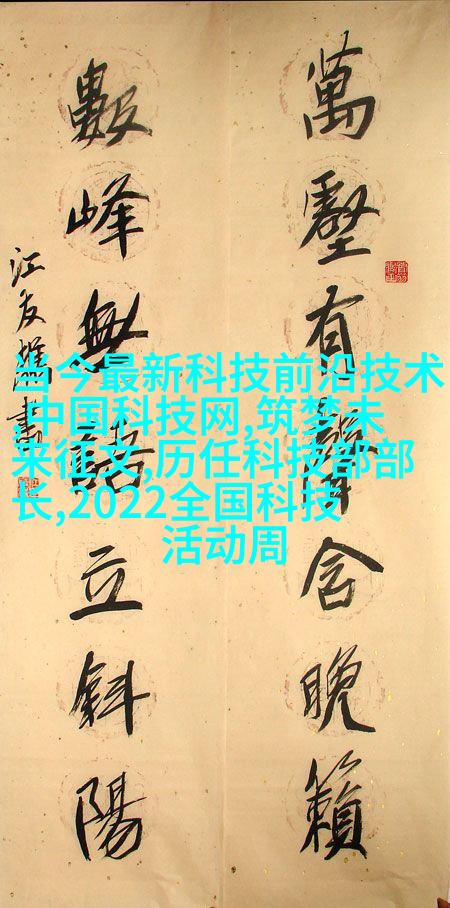 萬壑有聲含晚籟
數峰無語立斜陽
江友樵書
当今最新科技前沿技术
,中国科技网,筑梦未
来征文,历任科技部部
长,2022全国科技
活动周